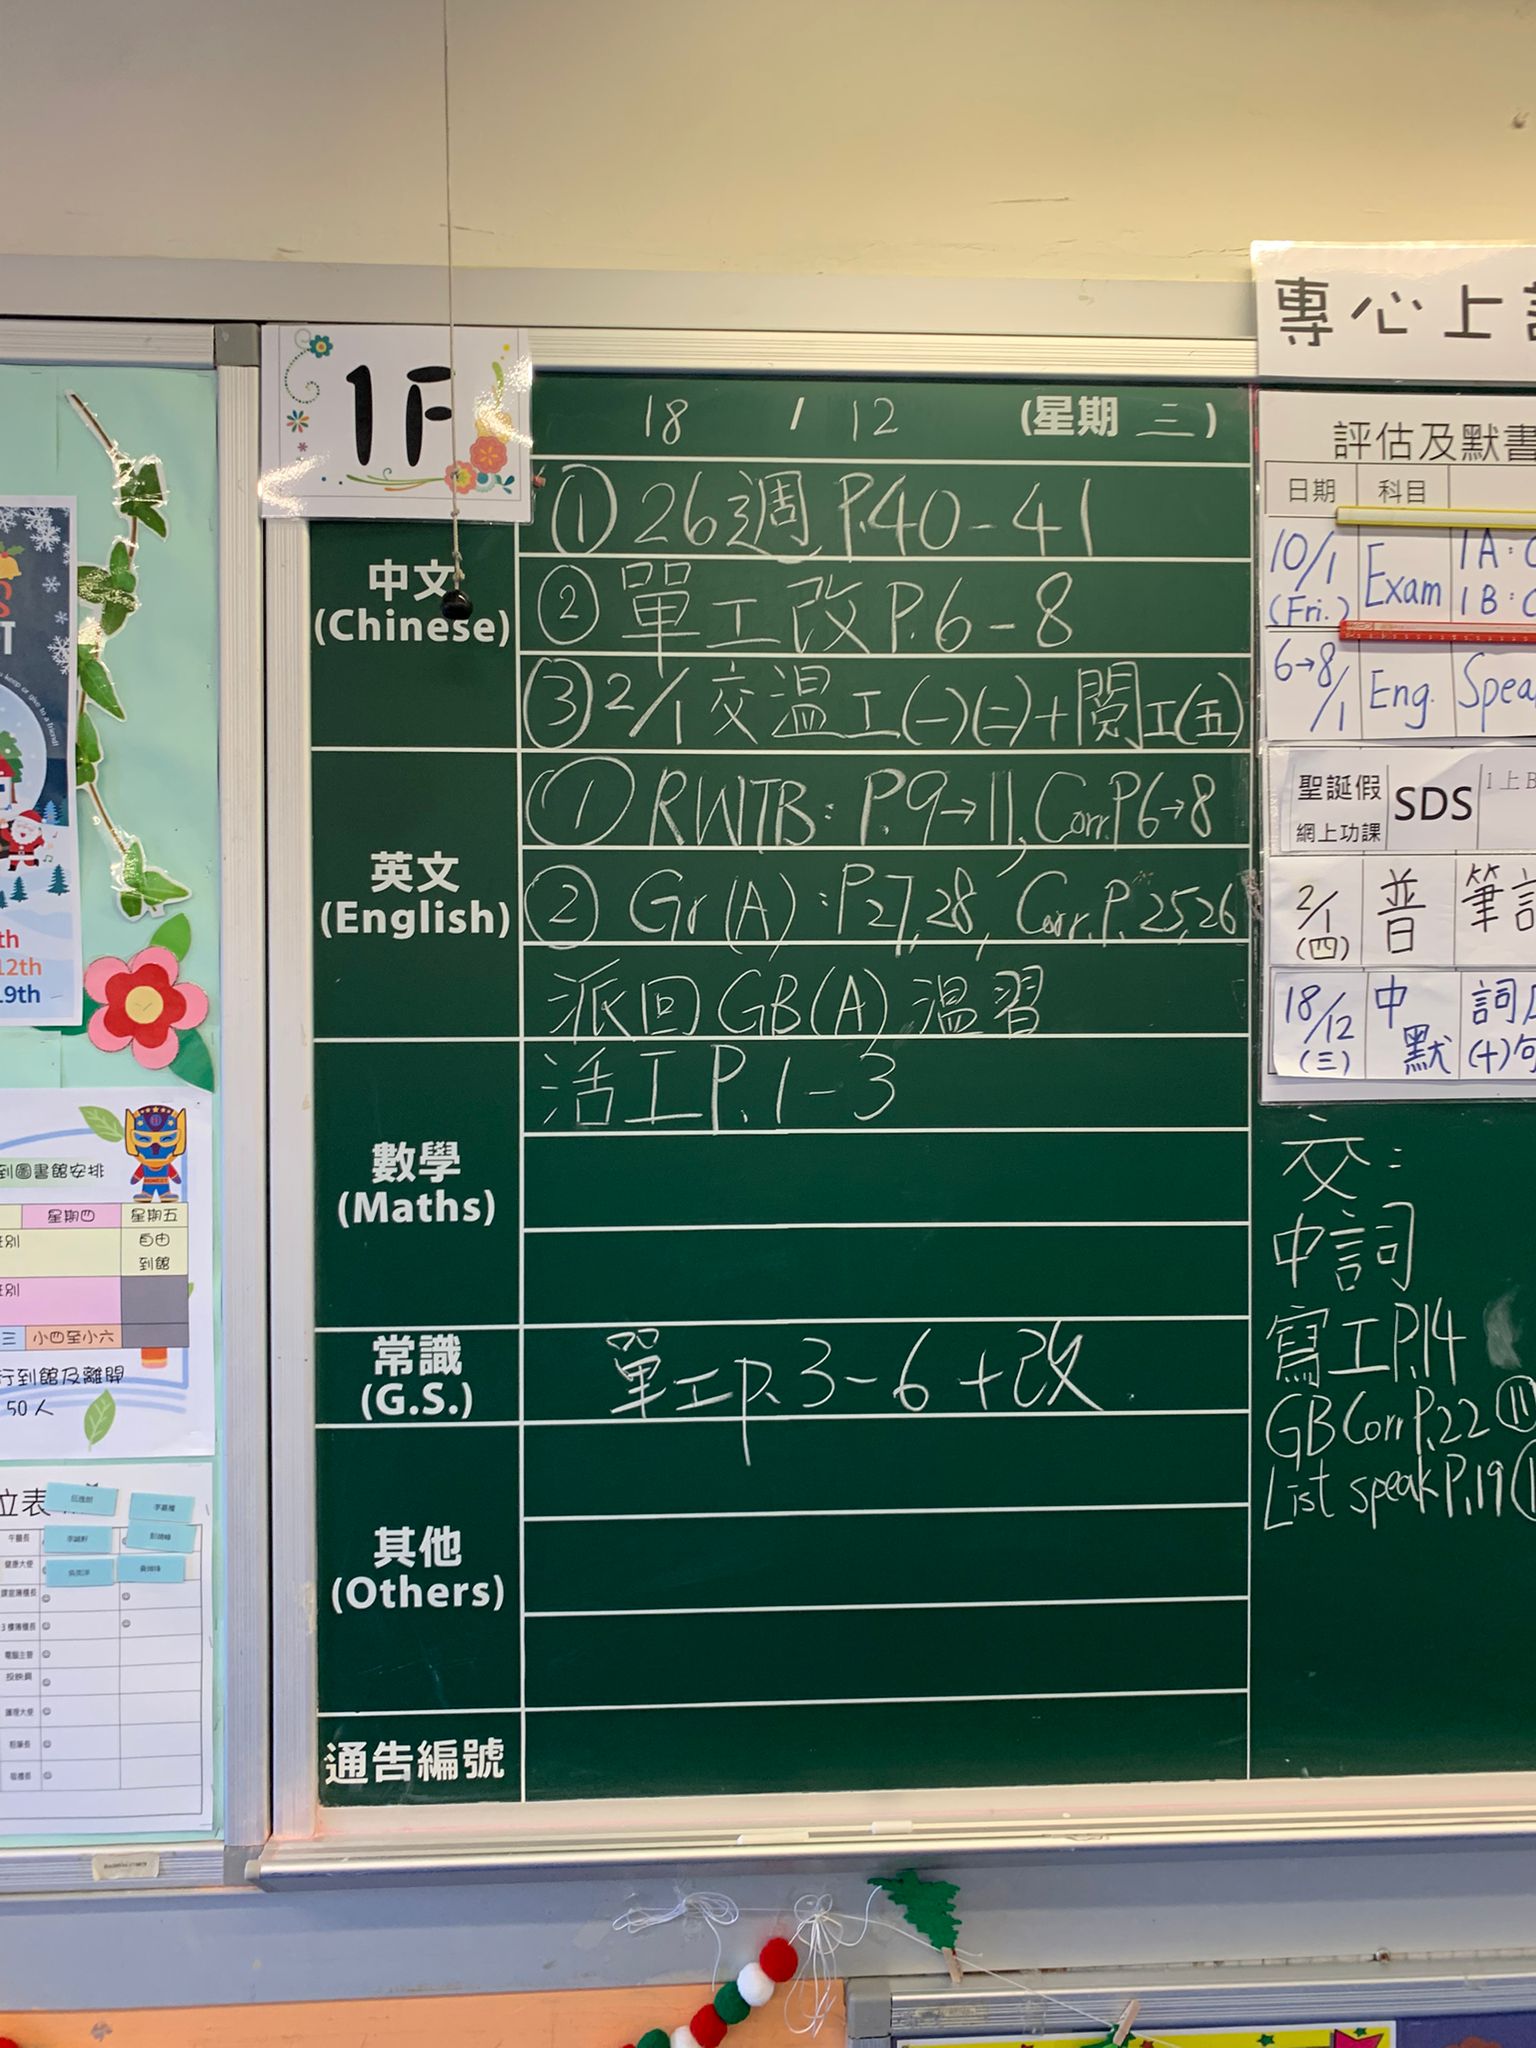 1F
18 / 12 (星期 三)
中文
(Chinese)
① 26週 P.40-41
② 單工改 P.6-8
③ 2/1 交溫工(一)(二)+閱工(五)
英文
(English)
① RWTB: P.9→11, Corr.P.6→8
② Gr(A): P.27,28, Corr.P.25,26
派回 GB(A) 溫習
數學
(Maths)
活工P.1-3
常識
(G.S.)
單工P.3-6+改
其他
(Others)
通告編號
專心上
評估及默書
日期 科目
10/1
(Fri.)
Exam
1A:
1B:
6→8/1
Eng.
聖誕假
網上功課
SDS
1上B
2/1
(四)
普
筆
18/12
(三)
中默
詞
(十)句
交:
中詞
寫工P.14
GB Corr P.22 ⑪
List speak P.19
th
12th
19th
到圖書館安排
星期四 星期五
自由
到館
三 小四至小六
行到館及離開
50人
位表